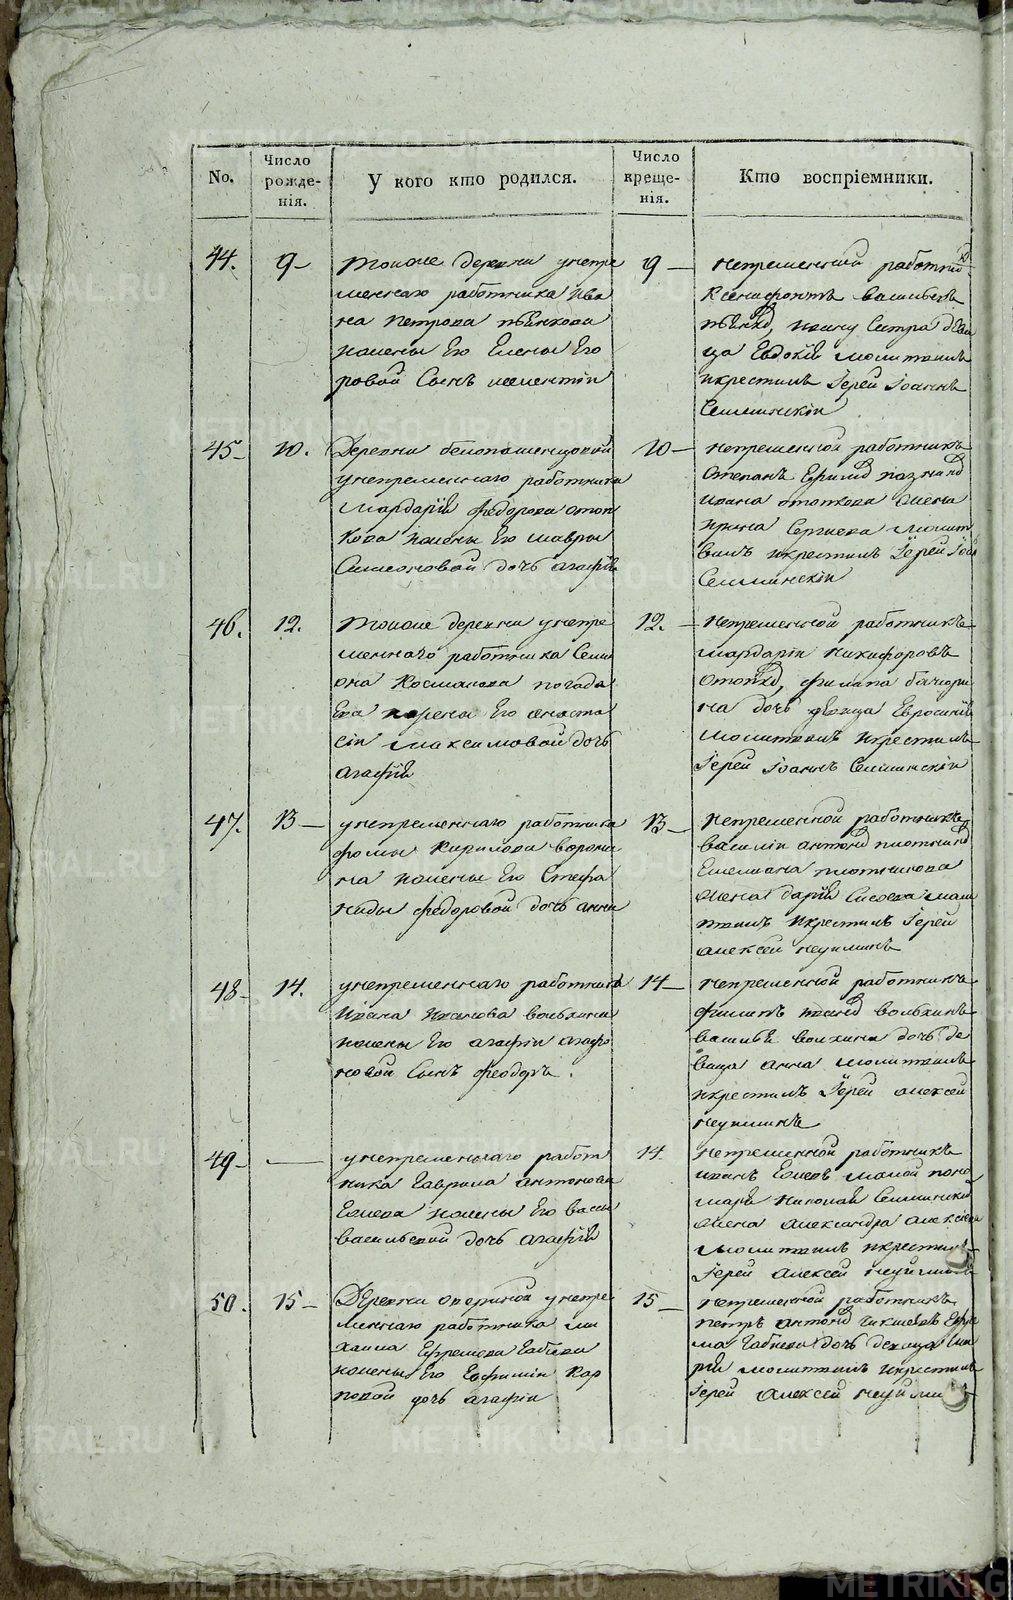 No.
Число рожде-нія.
У кого кто родился.
Число креще-нія.
Кто воспріемники.
44.
9
тоиже деревни унепре
меннаго работника Ива
на Петрова
ижены Его Елены Его
ровой Сынъ
9
непременный работник
Ксенофонтъ василь
ивану Сестра деви
ца Евдокія молитвилъ
икрестилъ Іерей Іоаннъ
Селиминскій
45
10.
Деревни
унепременнаго работника
Мардарія федорова отоп
кова ижены Его мавры
Симеоновой дочь агафія
10
непременной работникъ
степанъ
ивана отопкова жена
ирина Сергиева молит
вилъ икрестилъ Іерей Іоа
Селиминскій
46.
12.
тоиже деревни унепре
меннаго работника Семи
она Космакова погада
Ева ижены Его анаста
сіи максимовой дочь
агафія
12.
непременной работникъ
мардарій никифоровъ
филипа
на дочь девица Евросинія
молитвилъ икрестилъ
Іерей Іоаннъ Селиминскій
47.
13
унепременнаго работника
фомы Кирилова ворони
на ижены Его Стефа
ниды федоровой дочь анна
13
непременной работникъ
василій антонов плотников
Емелиана плотникова
жена дарія Сисоева мали
твилъ икрестилъ Іерей
алексей неуйминъ
48
14.
унепременнаго работника
Ивана Иванова вольхина
ижены Его агафіи агафо
новой Сынъ феодоръ.
14
непременной работникъ
филипъ иванов вольхинъ
василья волхина дочь де
вица анна молитвилъ
икрестилъ Іерей алексей
неуйминъ
49
унепременнаго работ
ника гаврила антонова
Ежева ижены Его васы
васильевой дочь агафія
14
непременной работникъ
иванъ Ежевъ малой поно
маря Николая Селиминской
жена александра алексиева
молитвилъ икрестилъ
Іерей алексей неуйминъ
50.
15
Деревни унепре
меннаго работника ми
хаила Ефремова габова
ижены Его Евфиміи Кар
повой дочь агафія
15
непременной работникъ
петръ антонов Ефре
ма дочь девица Ма
рія молитвилъ икрестилъ
Іерей алексей неуйми
METRIKI.GASO-URAL.RU